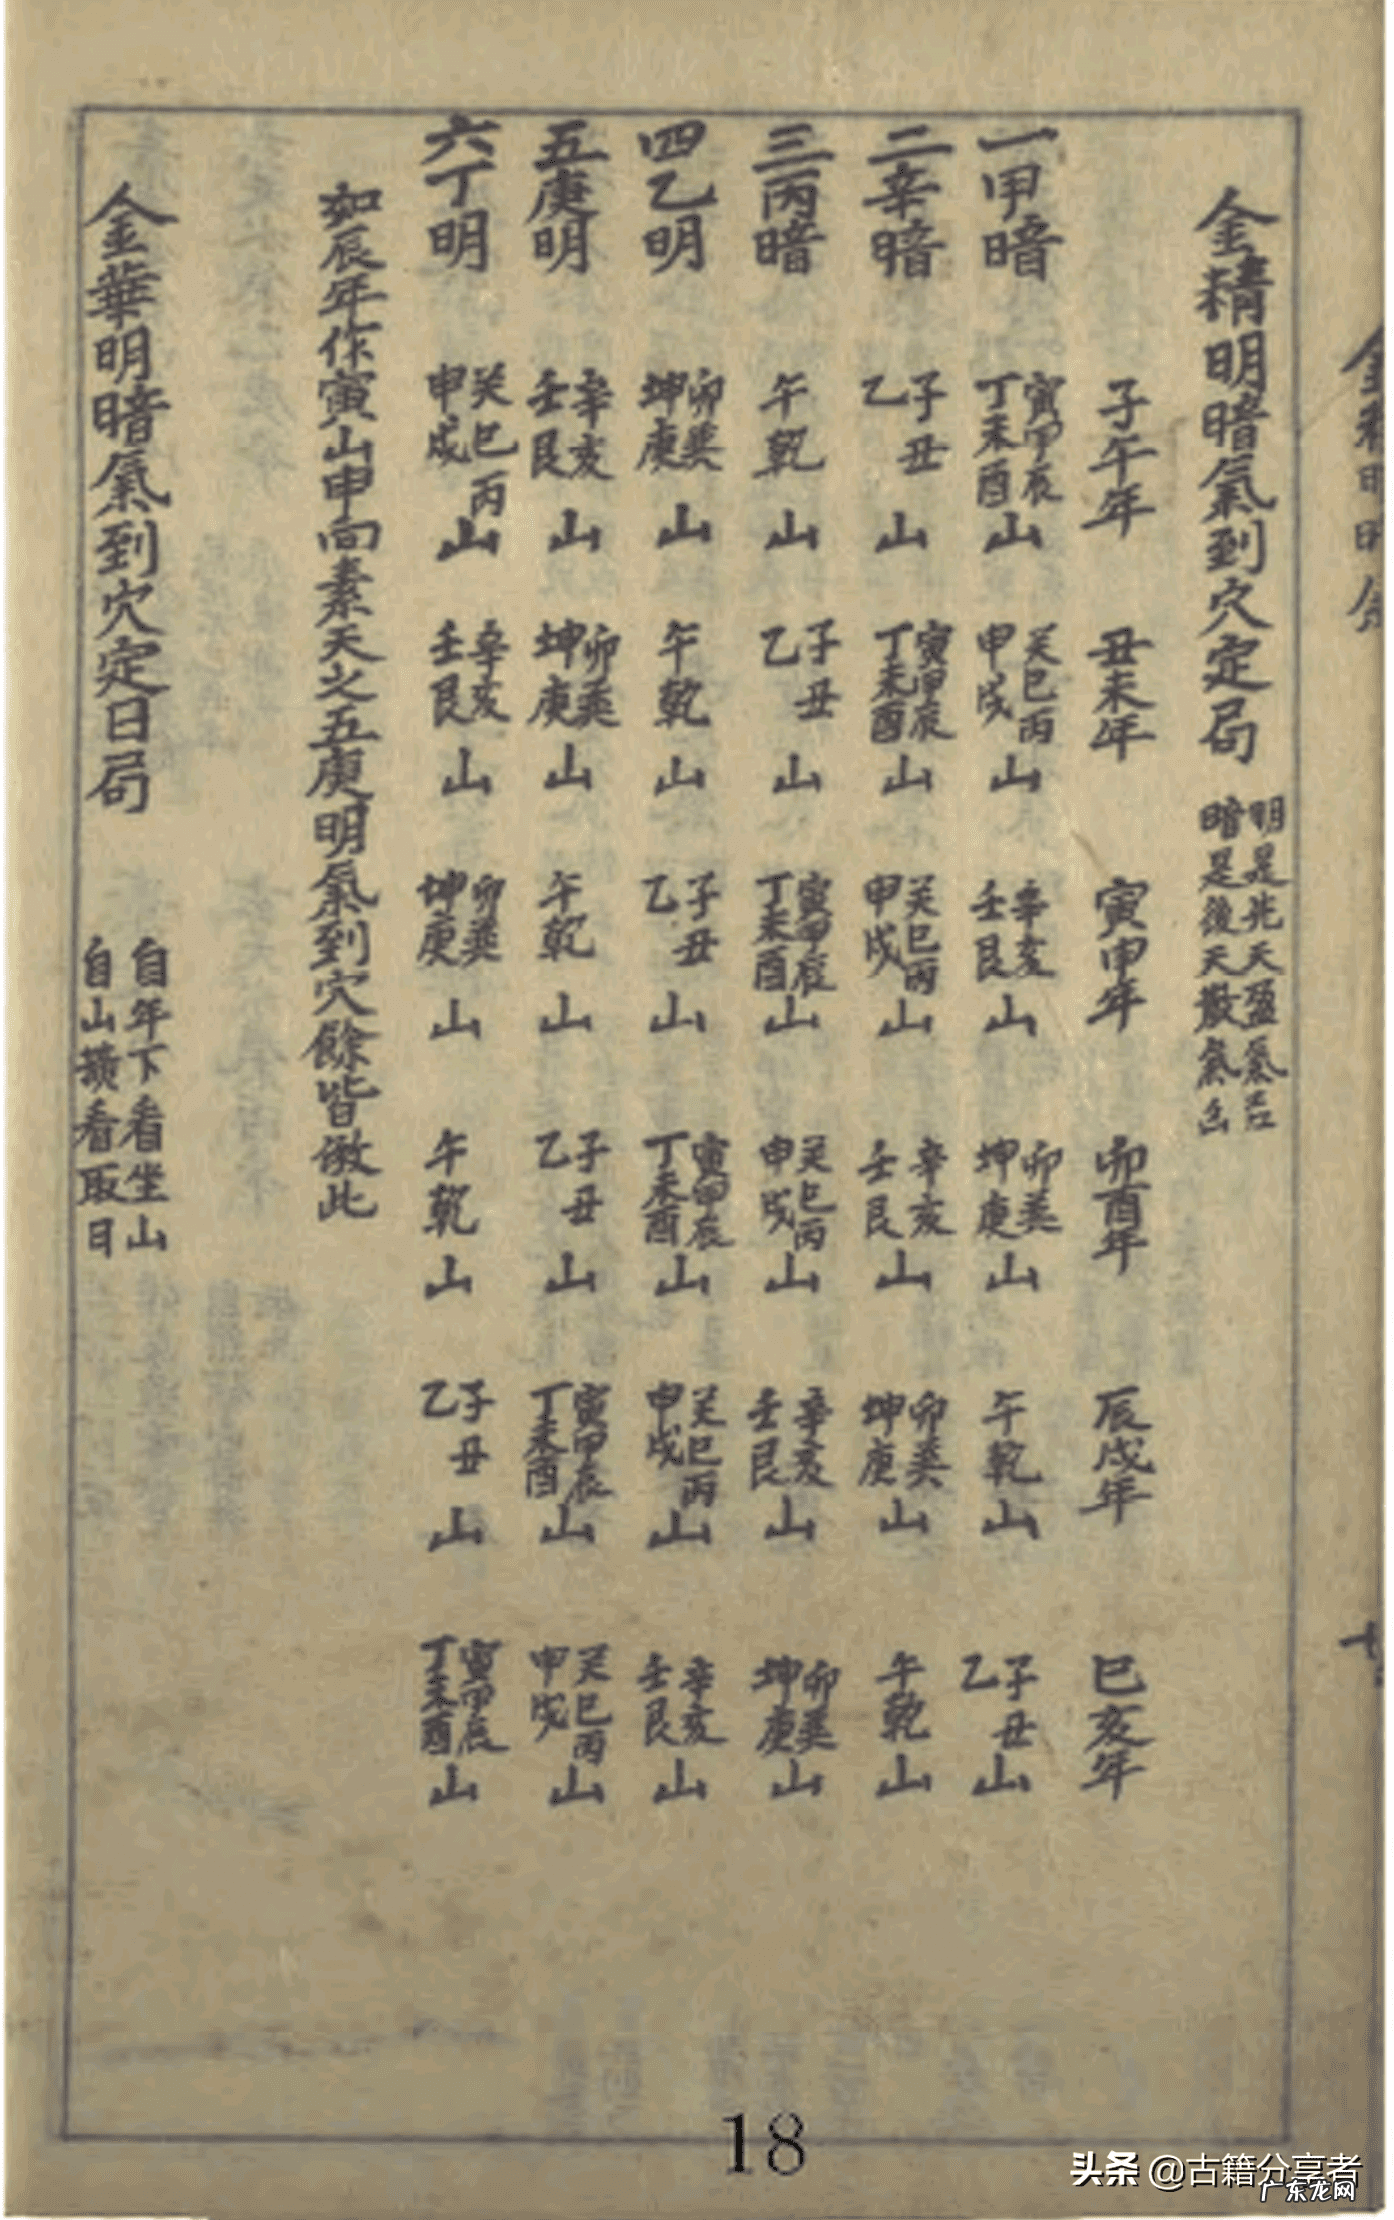 金精明暗氣到穴定局
明是先天盈氣吉
暗是後天散氣凶
子午年 丑未年 寅申年 卯酉年 辰戌年 巳亥年
一甲暗 寅甲辰丁未酉山 癸巳丙申戌山 辛亥壬艮山 卯巽坤庚山 午乾山 子丑乙山
二辛暗 子丑乙山 寅甲辰丁未酉山 癸巳丙申戌山 辛亥壬艮山 卯巽坤庚山 午乾山
三丙暗 午乾山 子丑乙山 寅甲辰丁未酉山 癸巳丙申戌山 辛亥壬艮山 卯巽坤庚山
四乙明 卯巽坤庚山 午乾山 子丑乙山 寅甲辰丁未酉山 癸巳丙申戌山 辛亥壬艮山
五庚明 辛亥壬艮山 卯巽坤庚山 午乾山 子丑乙山 寅甲辰丁未酉山 癸巳丙申戌山
六丁明 癸巳丙申戌山 辛亥壬艮山 卯巽坤庚山 午乾山 子丑乙山 寅甲辰丁未酉山
如辰年作寅山申向素天之五庚明氣到穴餘皆倣此
金華明暗氣到穴定日局
自年下看坐山
自山看取日
18
头条 @古籍分享者
广东龙网